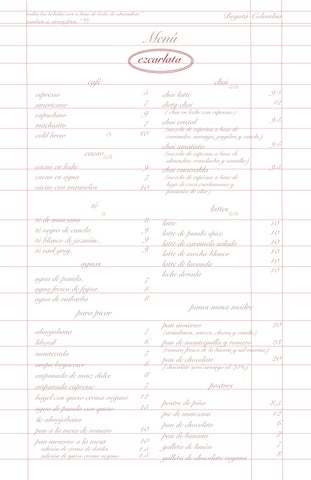 todas las bebidas son a base de leche de almendras
Bogotá Colombia
Menú
ezcarlata
café
espresso 5
americano 7
capuchino 9
macchiatto 7
cold brew 10
cacao
cacao en leche 9
cacao en agua 7
cacao con masmelos 10
té
té de manzana 8
té negro de canela. 9
té blanco de jazmín.. 9
té earl grey. 9
aguas
agua de panela. 7
agua fresca de feijoa. 8
agua de ruibarbo 8
para picar
almojabana 7
liberal 6
mantecada 7
arepa boyacense 8
empanada de maíz dulce 8
empanada caprese 7
bagel con queso crema vegano 12
agua de panela con queso 15
& almojabana
pan a la mesa de romero 10
pan invierno a la mesa 10
adición de crema de dátiles 1,5
adición de queso crema vegano 1,5
chai
chai latte 9,5
dirty chai 12
( chai en leche con espresso )
chai cristal 9,5
(mezcla de especias a base de
coriandro, naranja, jengibre y canela)
chai amatista 9,5
(mezcla de especias a base de
almendras, remolacha y vainilla )
chai esmeralda 9,5
(mezcla de especias a base de
hoja de coca, cardamomo y
pimienta de olor)
lattes
latte 10
latte de pumkn spice 10
latte de caramelo salado 10
latte de mocha blanco 10
latte de lavanda 10
leche dorada 10
panes masa madre
pan invierno 20
(arándanos, nueces, clavos y canela )
pan de mantequilla y romero 28
(romero fresco de la huerta y sal marina )
pan de chocolate 20
(chocolate semi amargo al 70%)
postres
postre de piña 8,5
pie de manzana 12
pan de chocolate 6
pan de banana 7
galleta de limón 7
galleta de chocolate vegana 8